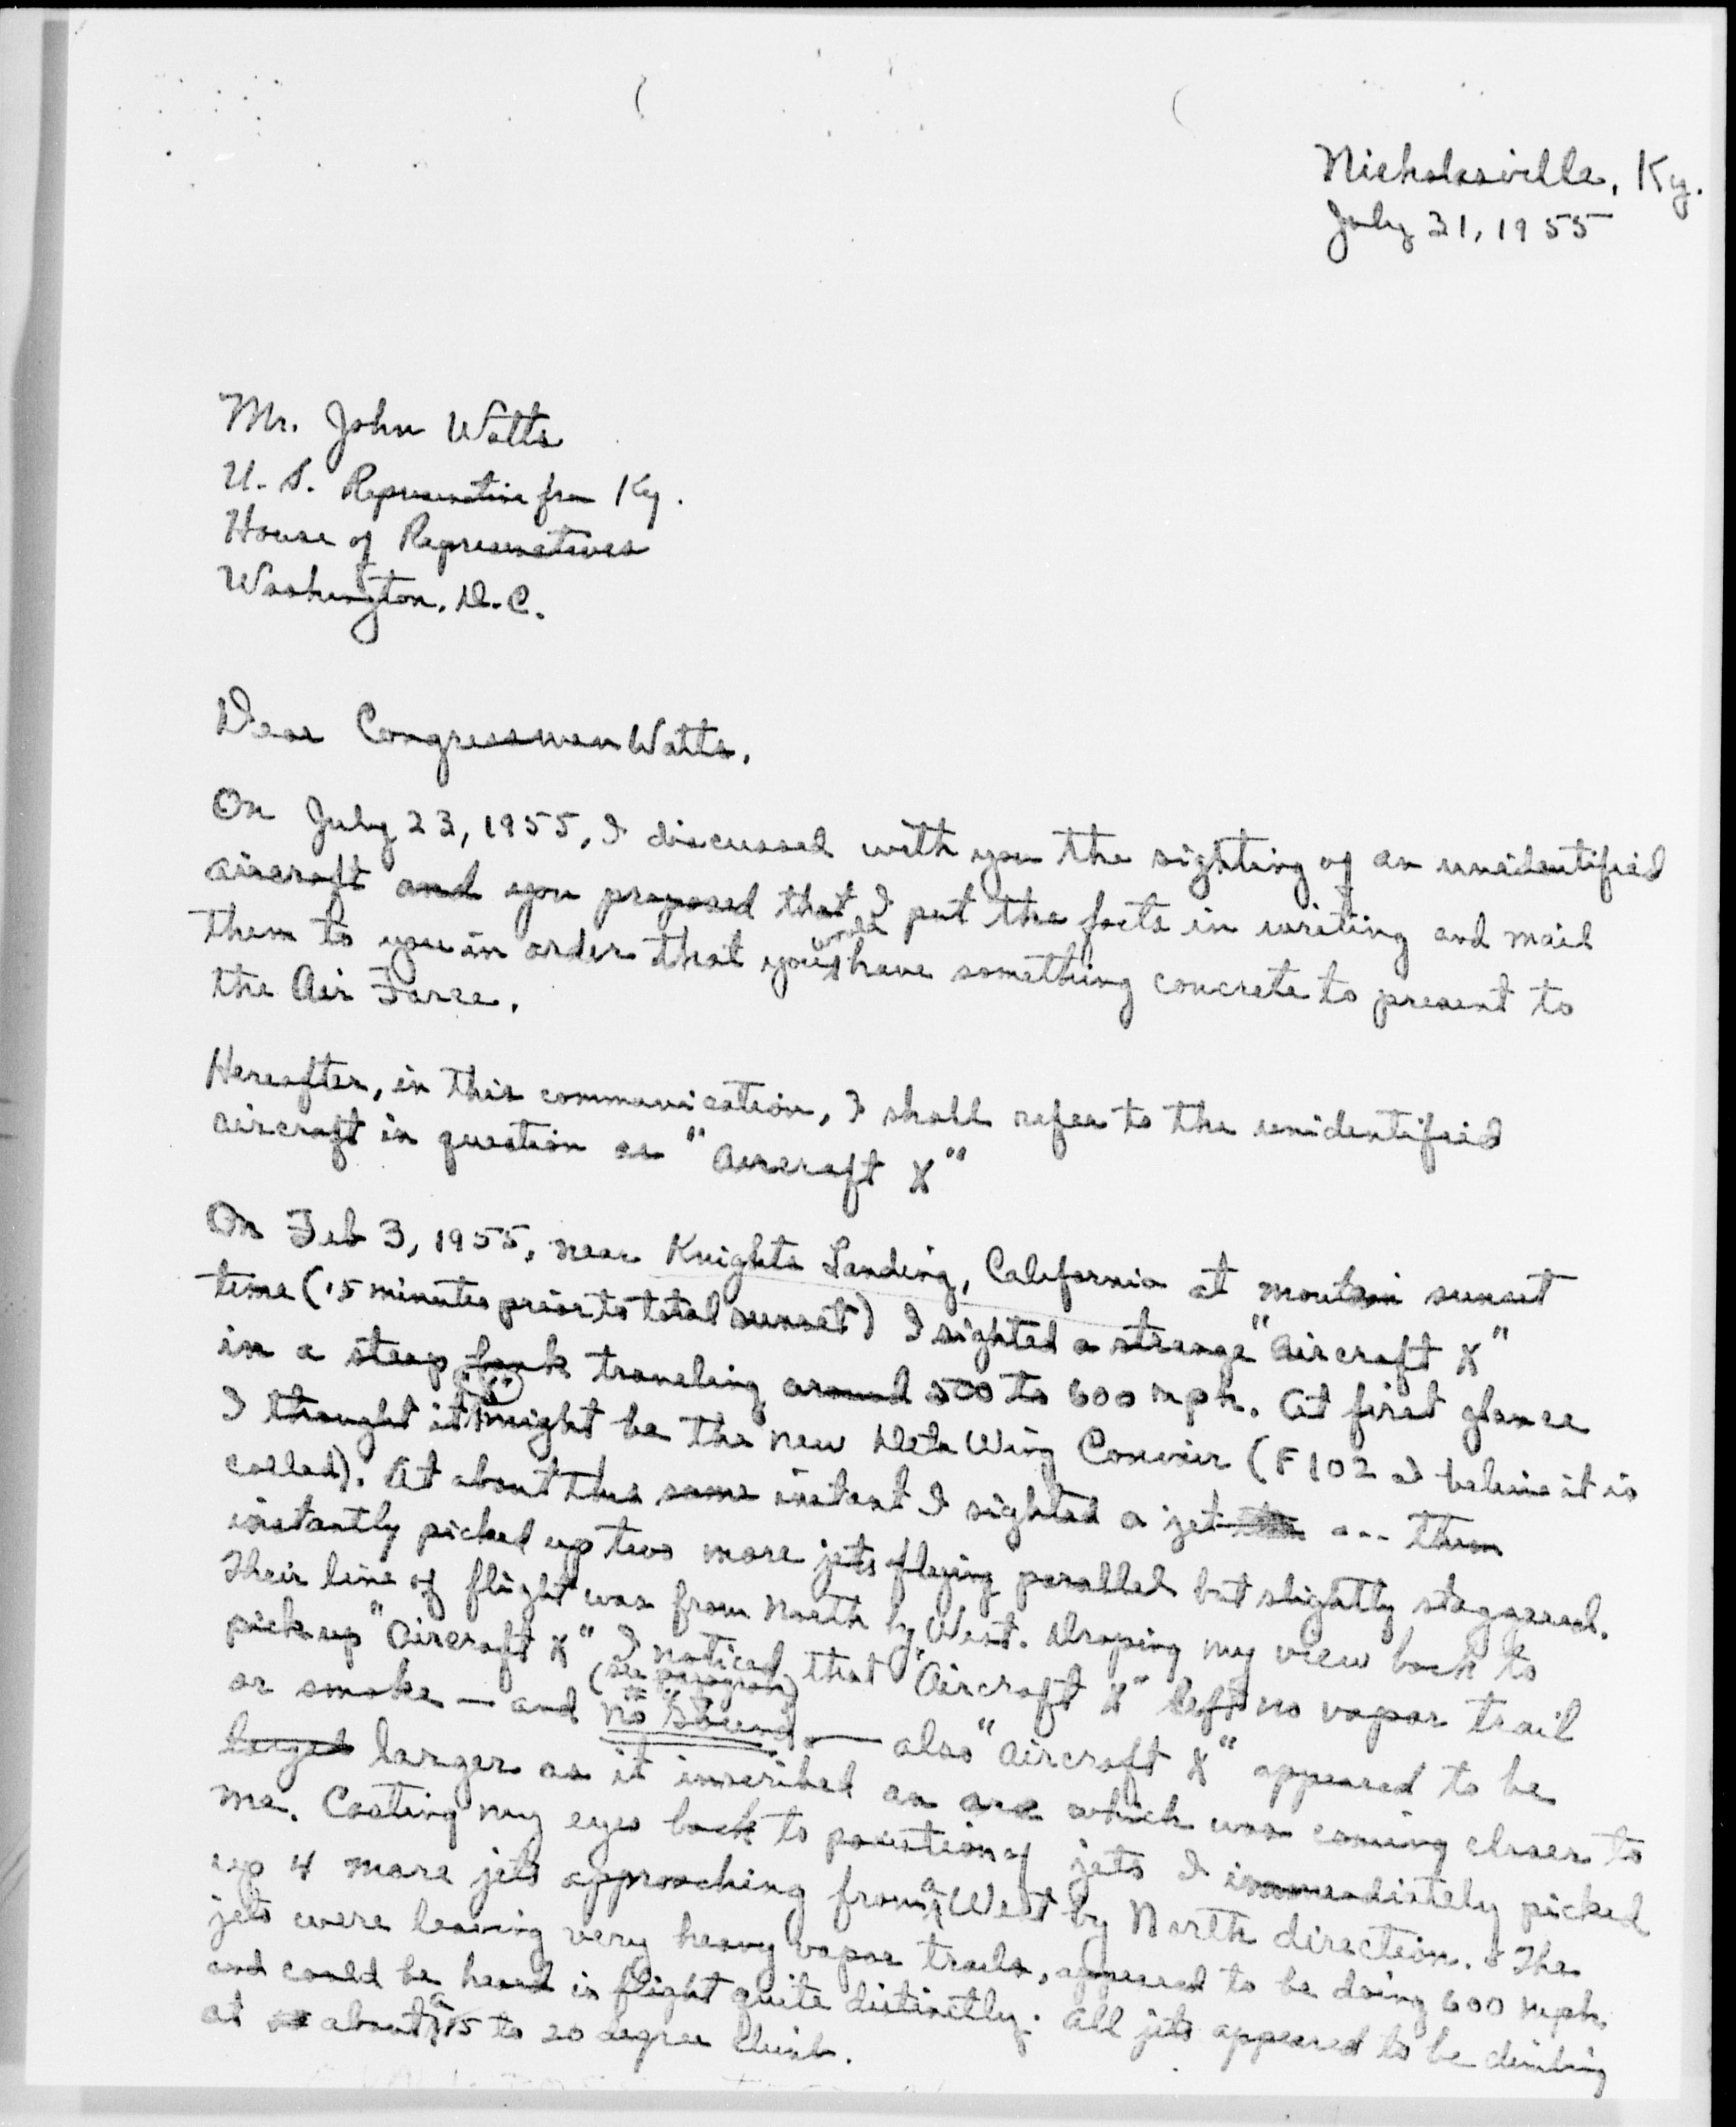 Nicholasville, Ky.
July 31, 1955
Mr. John Watts
U. S. Representive from Ky.
House of Representatives
Washington, D.C.
Dear Congressman Watts,
On July 23, 1955, I discussed with you the sighting of an unidentified
aircraft and you proposed that I put the facts in writing and mail
them to you in order that you would have something concrete to present to
the Air Force.
Hereafter, in this communication, I shall refer to the unidentified
aircraft in question as "Aircraft X"
On Feb 3, 1955, near Knights Landing, California at moutain sunset
time (15 minutes prior to total sunset) I sighted a strange "Aircraft X"
in a steep bank traveling around 500 to 600 mph. At first glance
I thought it might be the new Delta Wing Convair (F102 I believe it is
called). At about the same instant I sighted a jet --- then
instantly picked up two more jets flying parallel but slightly staggered.
Their line of flight was from North by West. Droping my view back to
pick up "Aircraft X" I noticed that "Aircraft X" left no vapor trail
or smoke — and (see paragraph) no "Sound" — also "Aircraft X" appeared to be
larger as it inscribed an arc which was coming closer to
me. Casting my eyes back to position of jets I immediately picked
up 4 more jets approaching from a West by North direction. The
jets were leaving very heavy vapor trails, appeared to be doing 600 mph.
and could be heard in flight quite distinctly. All jets appeared to be climbing
at about a 15 to 20 degree climb.